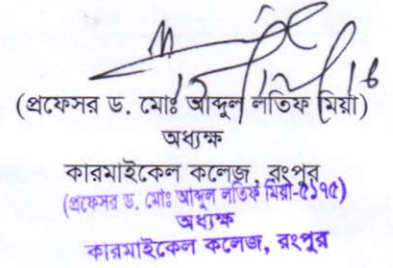 (প্রফেসর ড. মোঃ আব্দুল লতিফ মিয়া)
অধ্যক্ষ
কারমাইকেল কলেজ, রংপুর
(প্রফেসর ড. মোঃ আব্দুল লতিফ মিয়া-৫১৭৫)
অধ্যক্ষ
কারমাইকেল কলেজ, রংপুর